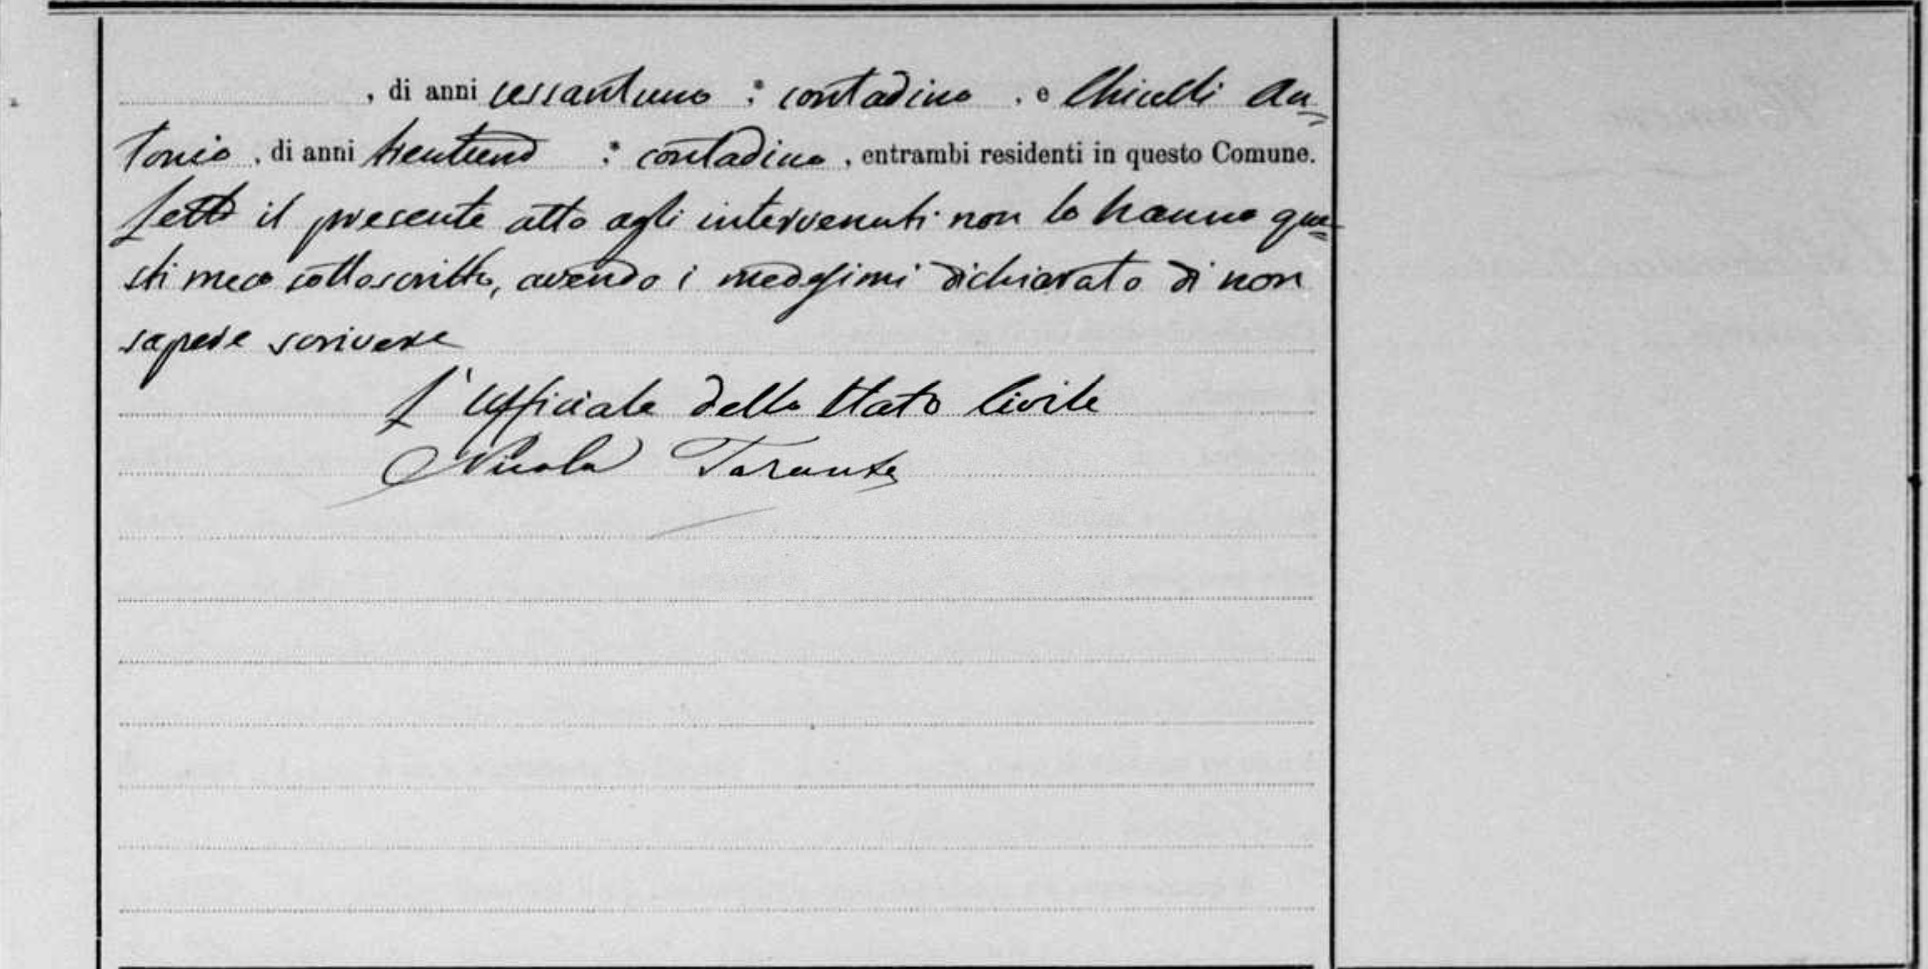 , di anni sessantuno : contadino , e Chicelli An=
tonio , di anni trentuno : contadino , entrambi residenti in questo Comune.
Letto il presente atto agli intervenuti non lo hanno que=
sti meco sottoscritto, avendo i medesimi dichiarato di non
sapere scrivere
L'Ufficiale dello Stato Civile
Nicola Taranto